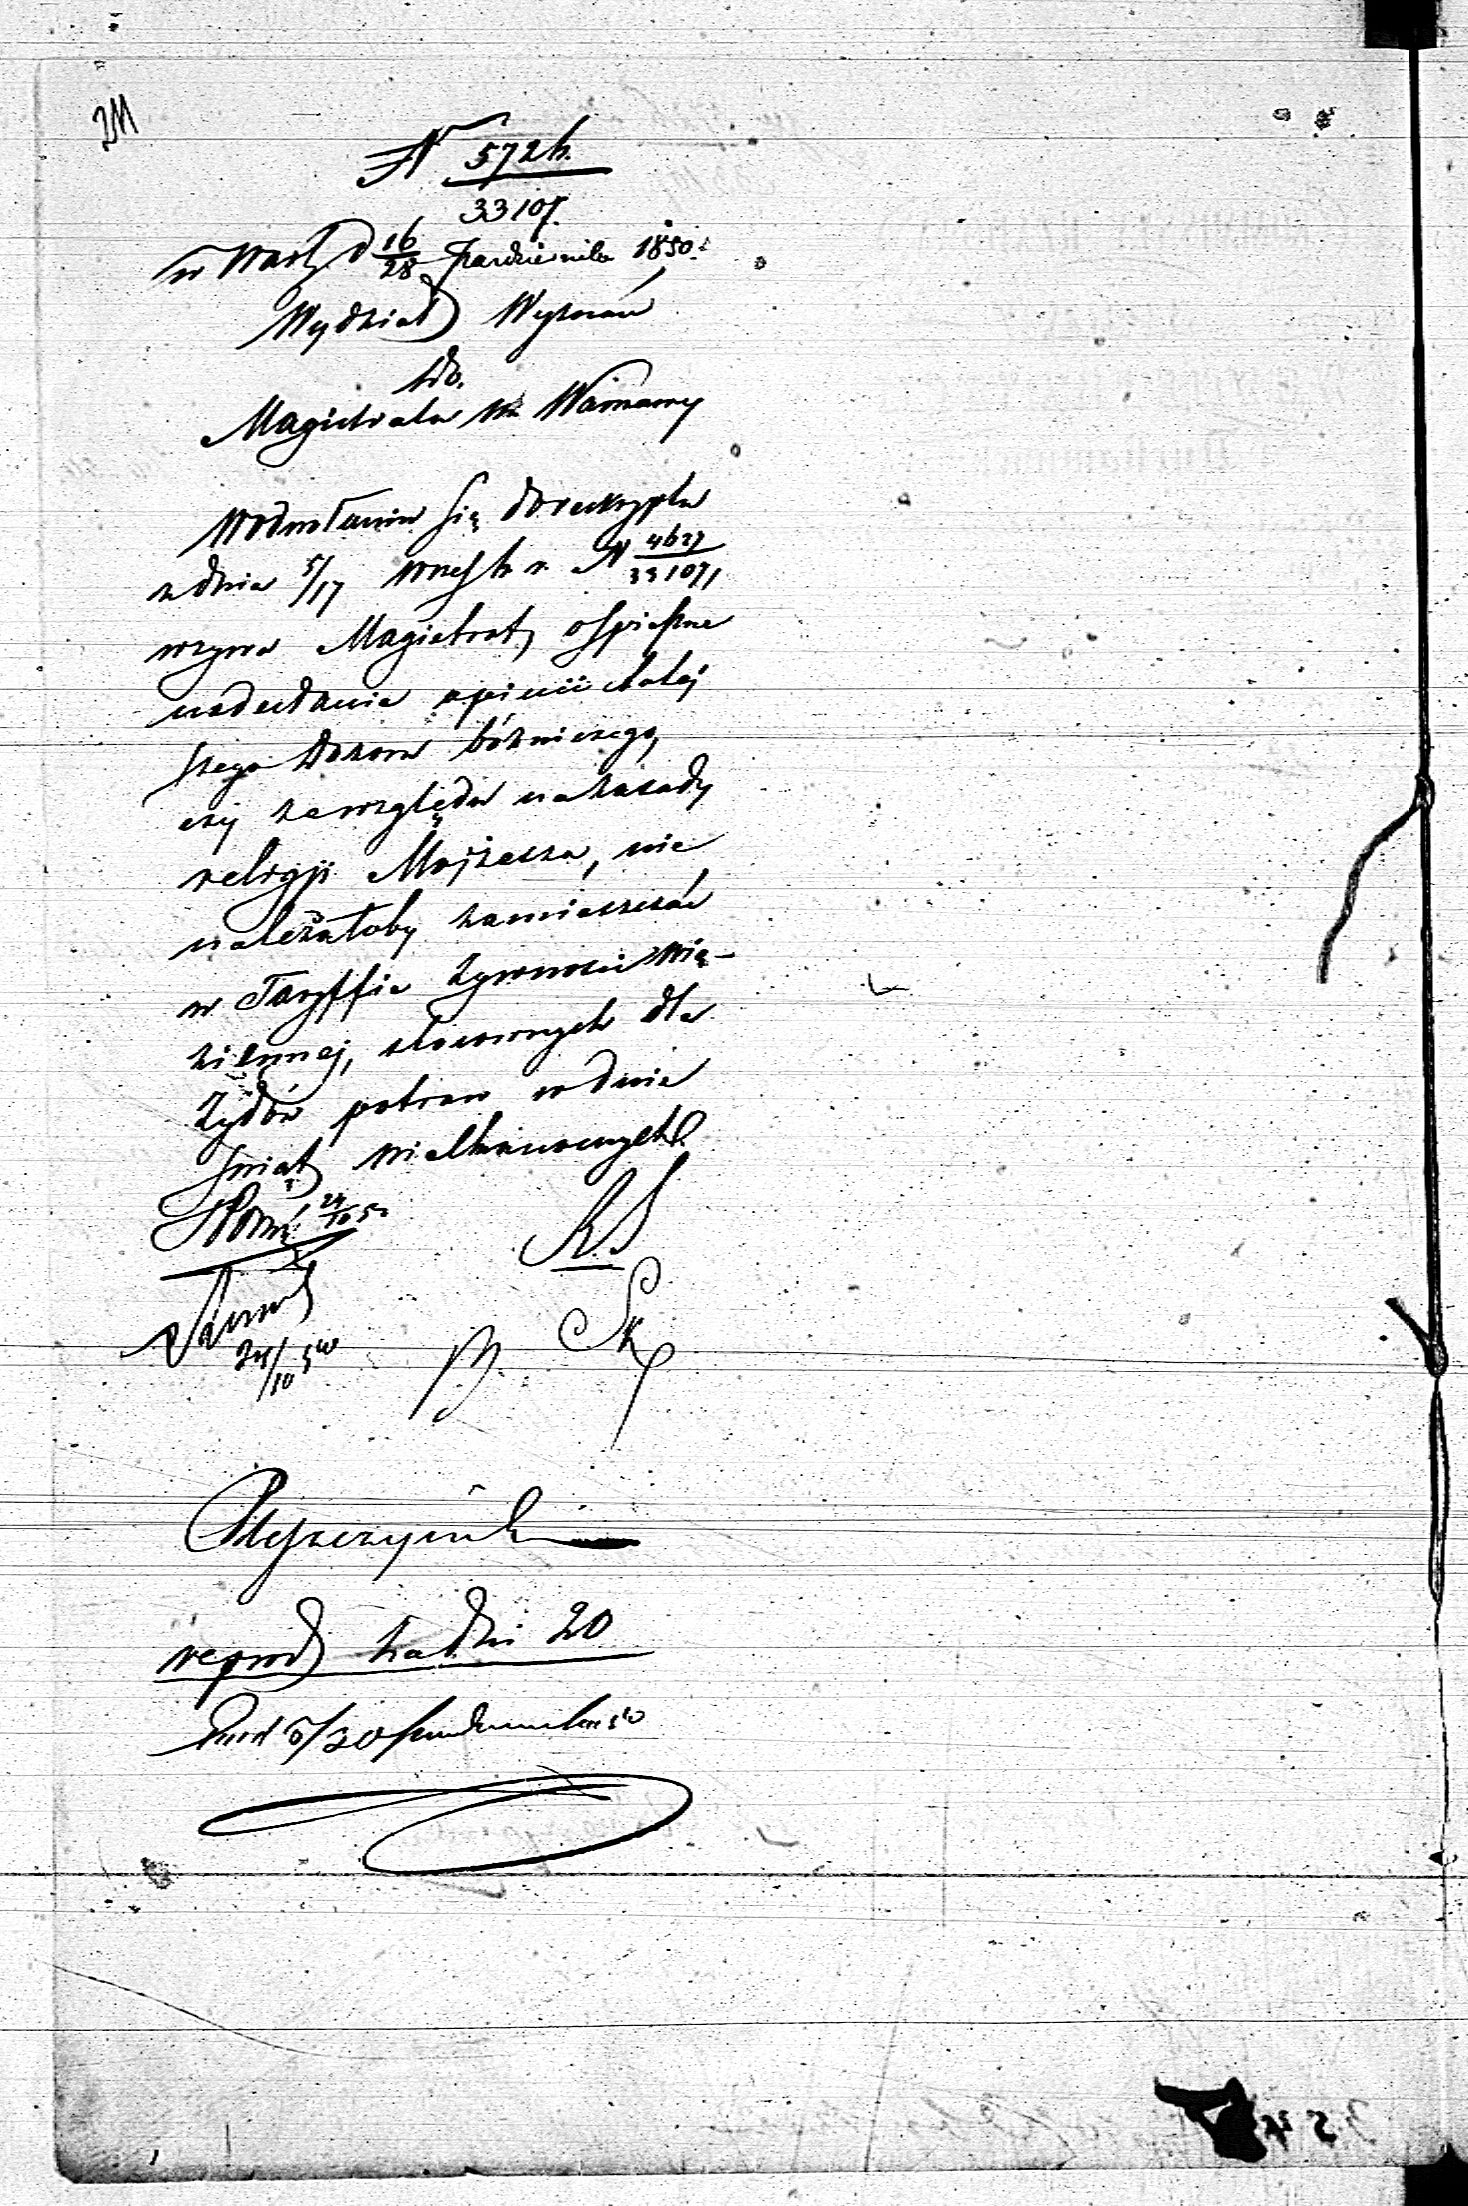 211
N 572b.
33107.
w Warsz. d 16/28 Października 1850.
Wydział Wyznań
do.
Magistratu M. Warszawy
W odwołaniu się do reskryptu
z dnia 5/17 Wrześ. b. r. N 4627/33107,
wzywa Magistrat, o spieszne
nadesłanie opinii tutej
szego Dozoru bóżniczego,
czy ze względu na zasady
religji Mojżesza, nie
należałoby zamieszczać
w Taryffie żywności wię-
ziennej, stosownych dla
Żydów potraw w dnie
Świąt Wielkanocnych.
24/10 50
K. S
24/10 50
Sk
reprod za dni 20